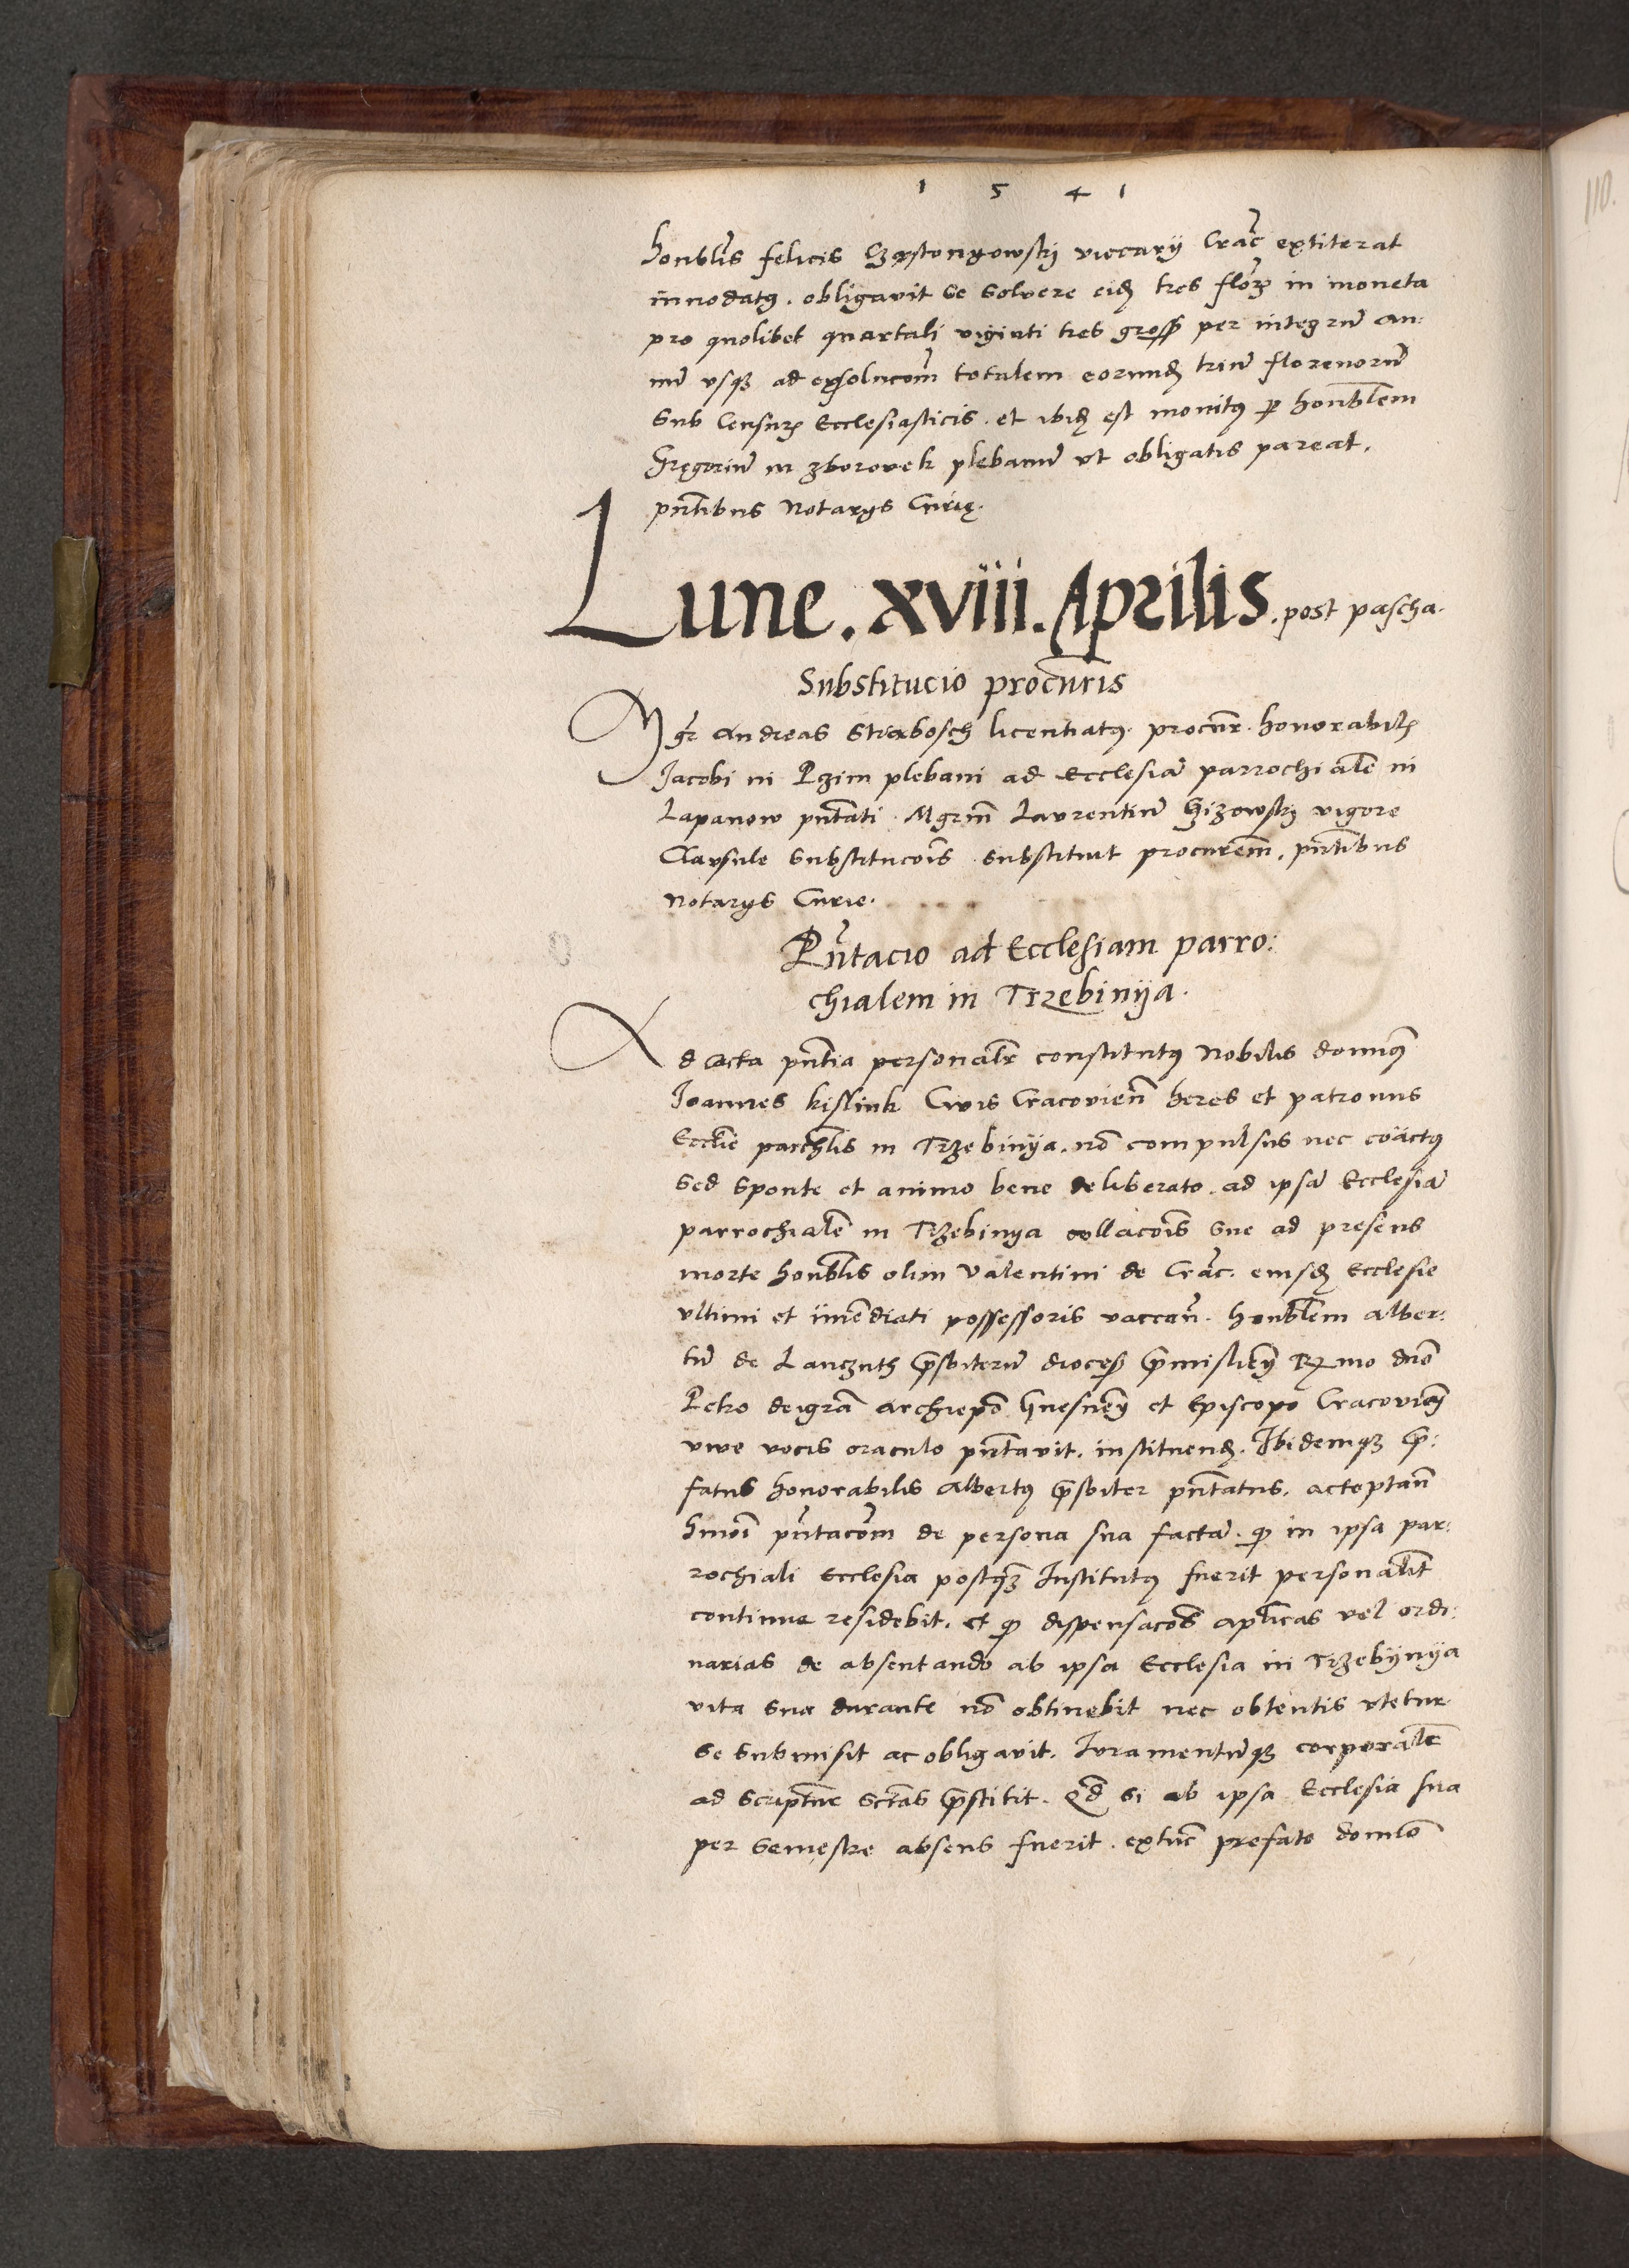 1 5 4 1
honblis felicis Czestongowskj viccarij Crac extiterat
innodatus. obligavit se solvere eidem tres flor in moneta
pro quolibet quartali viginti tres gross per integrum an:
num usque ad exsolucoem totalem eorundem trium florenorum
sub censuris Ecclesiasticis. et ibidem est monitus per honblem
Gregorium in zborovek plebanum ut obligatis pareat.
pntibus Notarijs Curię.
Lune. xviii. Aprilis. post pascha.
Substitucio procuris
Mgr Andreas Strabosch licentiatus. procur. honorabilis
Jacobi in Pzim plebani ad Ecclesiam parrochialem in
Lapanow pntati. Mgrm Laurentium Gizowskj vigore
Clausule substitucois substituit procurem. pntibus
notarijs Curie.
Pntacio ad Ecclesiam parro:
chialem in Trzebinija.
Ad acta pntia personalr constitutus Nobilis dominus
Joannes kislink Civis Cracovien heres et patronus
Ecclie parchlis in Trzebinija. no compulsus nec coactus
sed sponte et animo bene deliberato. ad ipsam Ecclesiam
parrochialem in Trzebinya collacois sue ad presens
morte honblis olim Valentini de Crac. eiusdem Ecclesie
ultimi et immediati possessoris vaccan. honblem Alber:
tum de Lanczuth presbiterum dioces premislien Rmo dno
Petro dei gra Archiepo Gnesnen et Episcopo Cracovien
vive vocis oraculo pntavit. instituendum. Ibidemque pre:
fatus honorabilis Albertus presbiter pntatus. acceptan
hmoi pntacoem de persona sua factam. quod in ipsa par:
rochiali Ecclesia postquam Institutus fuerit personalit
continue residebit. et quod dispensacoes aplicas vel ordi:
narias de absentando ab ipsa Ecclesia in Trzebijnija
vita sua durante no obtinebit nec obtentis utetur
se submisit ac obligavit. Iuramentumque corporale
ad scriptur sctas prestitit. Qd si ab ipsa Ecclesia sua
per semestre absens fuerit. extunc prefato domino